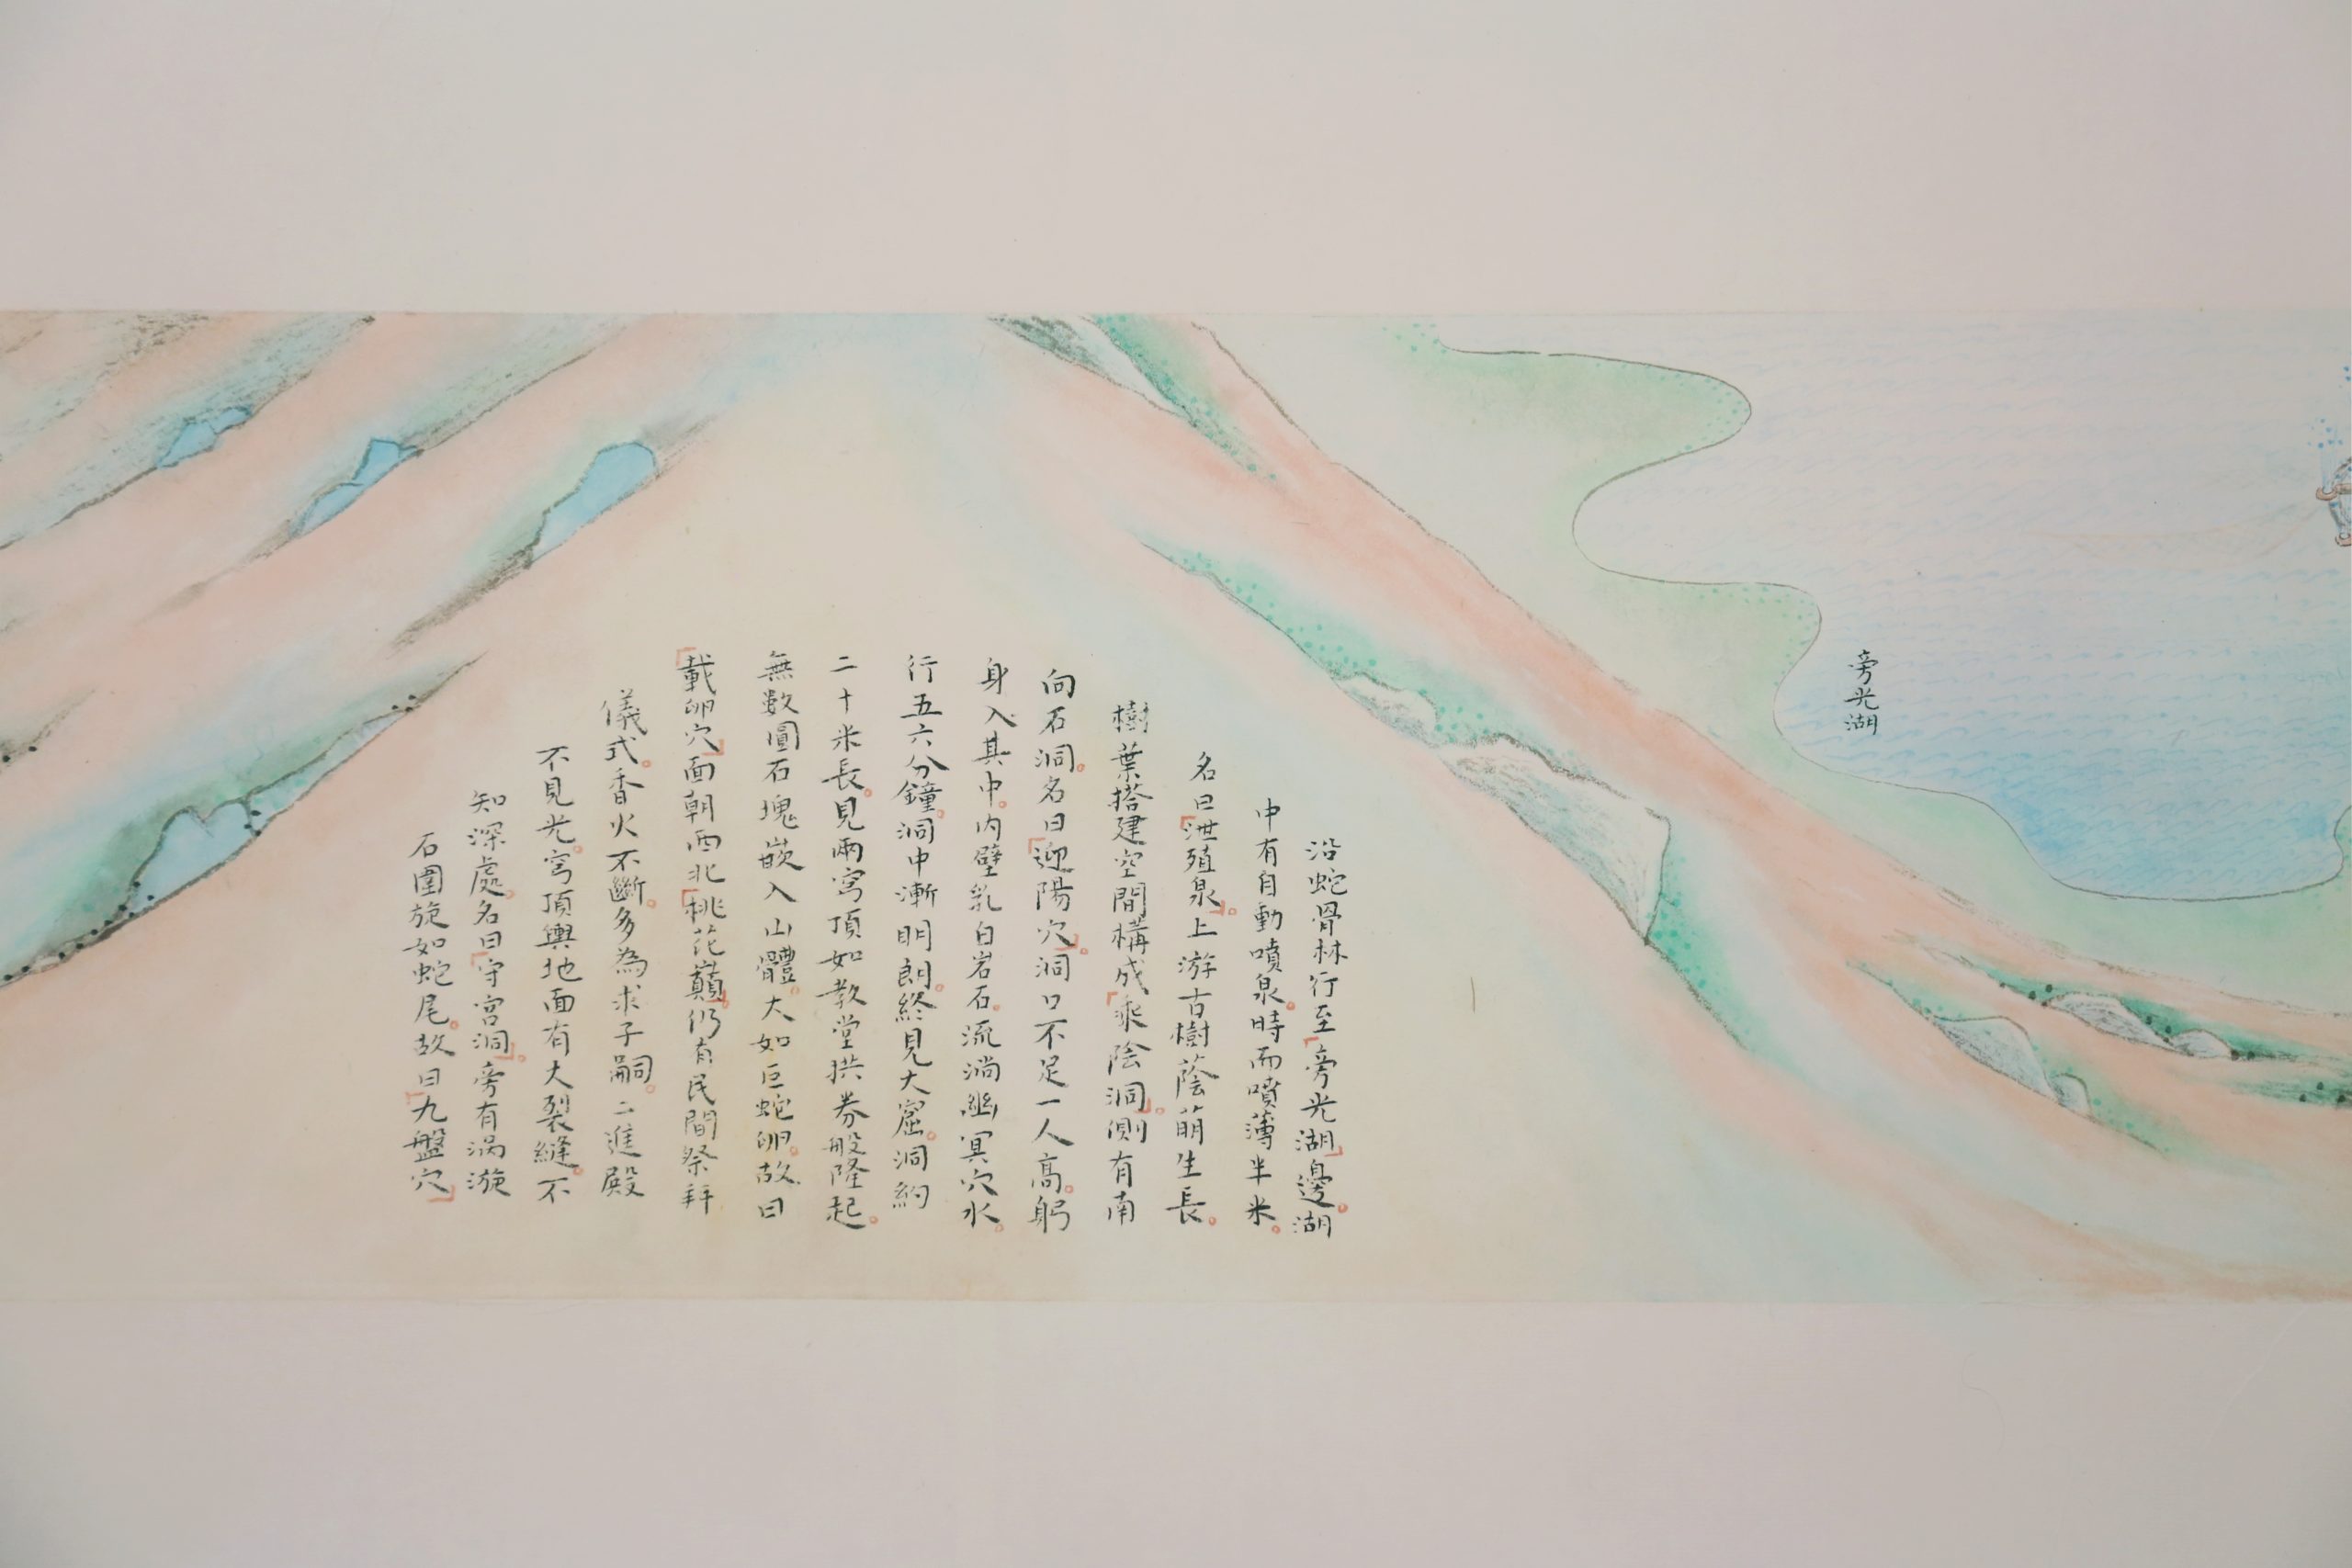 旁光湖
沿蛇骨林行至「旁光湖」邊。湖
中有自動噴泉。時而噴薄半米。
名曰「泄殖泉」。上游古樹蔭萌生長。
樹葉搭建空間構成「乘陰洞」。側有南
向石洞。名曰「迎陽穴」。洞口不足一人高。躬
身入其中。內壁乳白岩石。流淌幽冥穴水。
行五六分鐘。洞中漸明朗。終見大窟。洞約
二十米長。見兩宮頂如教堂拱券般隆起。
無數圓石塊嵌入山體。大如巨蛇卵。故曰
「載卵穴」面朝西北「桃花巔」。仍有民間祭拜
儀式。香火不斷。多為求子嗣。二進殿
不見光。宮頂與地面有大裂縫。不
知深處。名曰「守宮洞」。旁有渦漩
石圍旋如蛇尾。故曰「九盤穴」